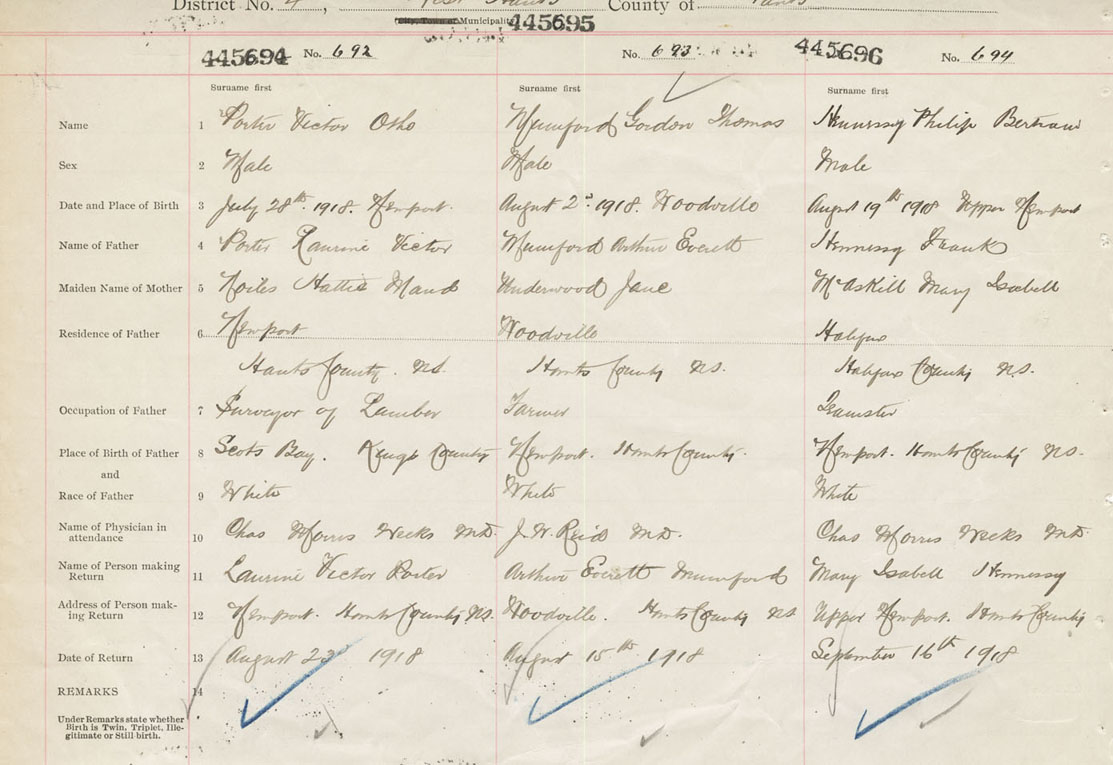 District No. 4, West Hants County of Hants
Municipality
445695
445694 No. 692 No. 693 445696 No. 694
Surname first Surname first Surname first
Name 1 Porter Victor Otho Mumford Gordon Thomas Hennessy Philip Bertram
Sex 2 Male Male Male
Date and Place of Birth 3 July 28th. 1918. Newport. August 2nd. 1918. Woodville August 19th 1918 Upper Newport
Name of Father 4 Porter Laurine Victor Mumford Arthur Everett Hennessy Frank
Maiden Name of Mother 5 Noiles Hattie Maud Underwood Jane McAskill Mary Isabell
Residence of Father 6 Newport Woodville Halifax
Hants County. N.S. Hants County N.S. Halifax County N.S.
Occupation of Father 7 Surveyor of Lumber Farmer Teamster
Place of Birth of Father 8 Scots Bay. Kings County Newport. Hants County. Newport. Hants County N.S.
and
Race of Father 9 White White White
Name of Physician in
attendance 10 Chas Morris Weeks M.D. J. W. Reid M.D. Chas Morris Weeks M.D.
Name of Person making
Return 11 Laurine Victor Porter Arthur Everett Mumford Mary Isabell Hennessy
Address of Person mak-
ing Return 12 Newport. Hants County N.S. Woodville. Hants County N.S Upper Newport. Hants County
Date of Return 13 August 23 1918 August 15th 1918 September 16th 1918
REMARKS 14
Under Remarks state whether
Birth is Twin, Triplet, Ille-
gitimate or Still birth.